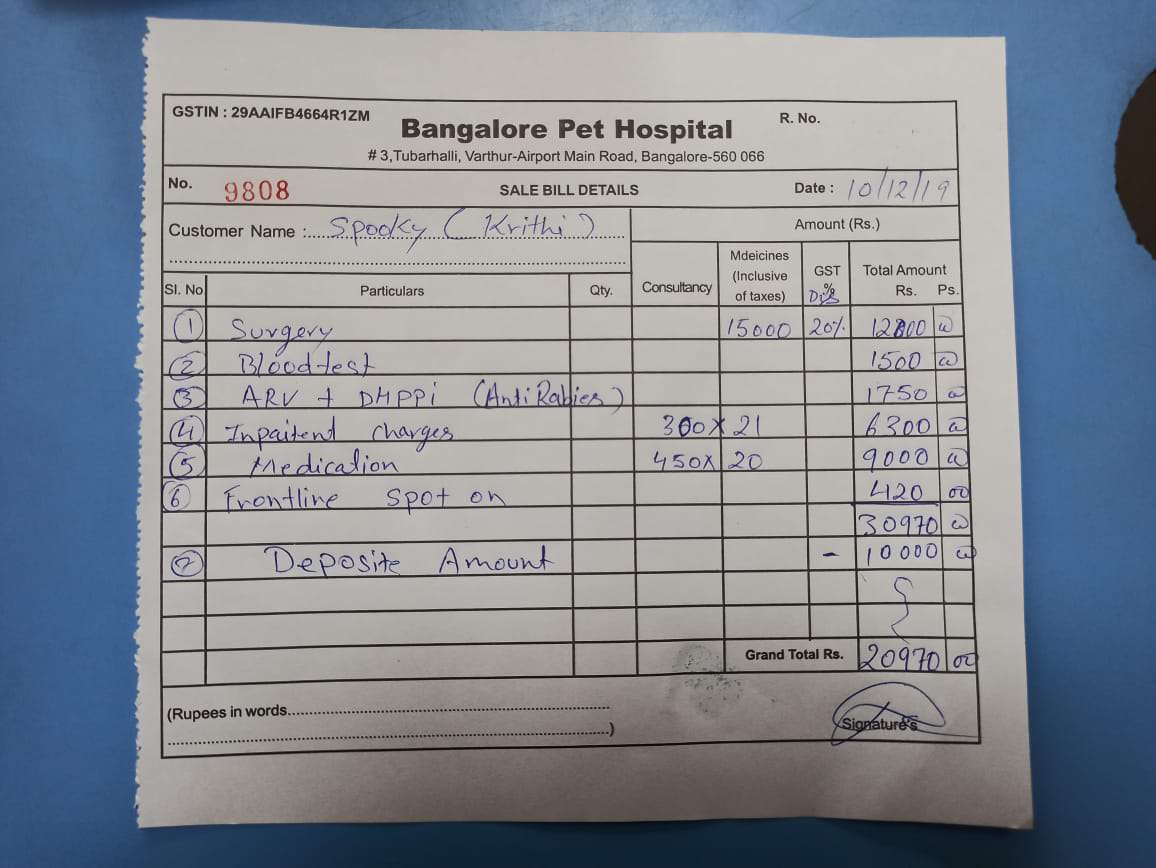 GSTIN : 29AAIFB4664R1ZM
R. No.
Bangalore Pet Hospital
# 3,Tubarhalli, Varthur-Airport Main Road, Bangalore-560 066
No. 9808 SALE BILL DETAILS Date : 10/12/19
Customer Name : Spooky ( Krithi )
Amount (Rs.)
Sl. No Particulars Qty. Consultancy Mdeicines (Inclusive of taxes) GST % Dis Total Amount Rs. Ps.
1 Surgery 15000 20% 12000
2 Blood test 1500
3 ARV + DHPPi (Anti Rabies) 1750
4 Inpaitent charges 300 x 21 6300
5 Medication 450 x 20 9000
6 Frontline spot on 420 00
30970
7 Deposite Amount - 10000
Grand Total Rs. 20970 00
(Rupees in words
)
Signature's